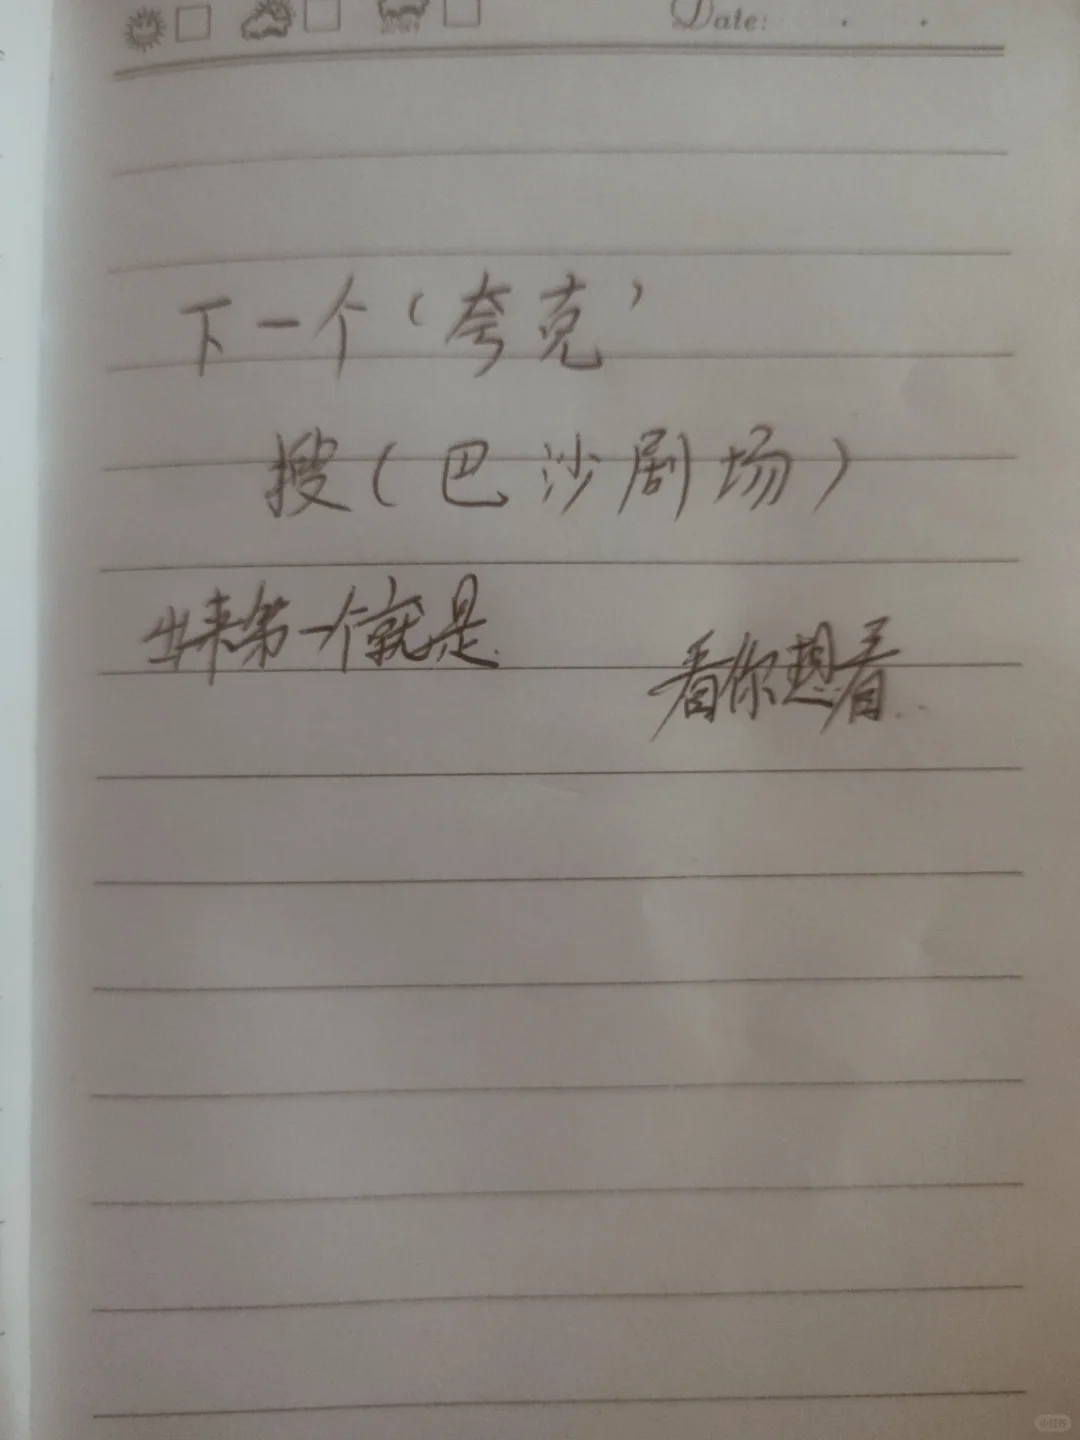 Date:
下一个(夸克)
搜(巴沙剧场)
出来第一个就是
看你想看..
小红书